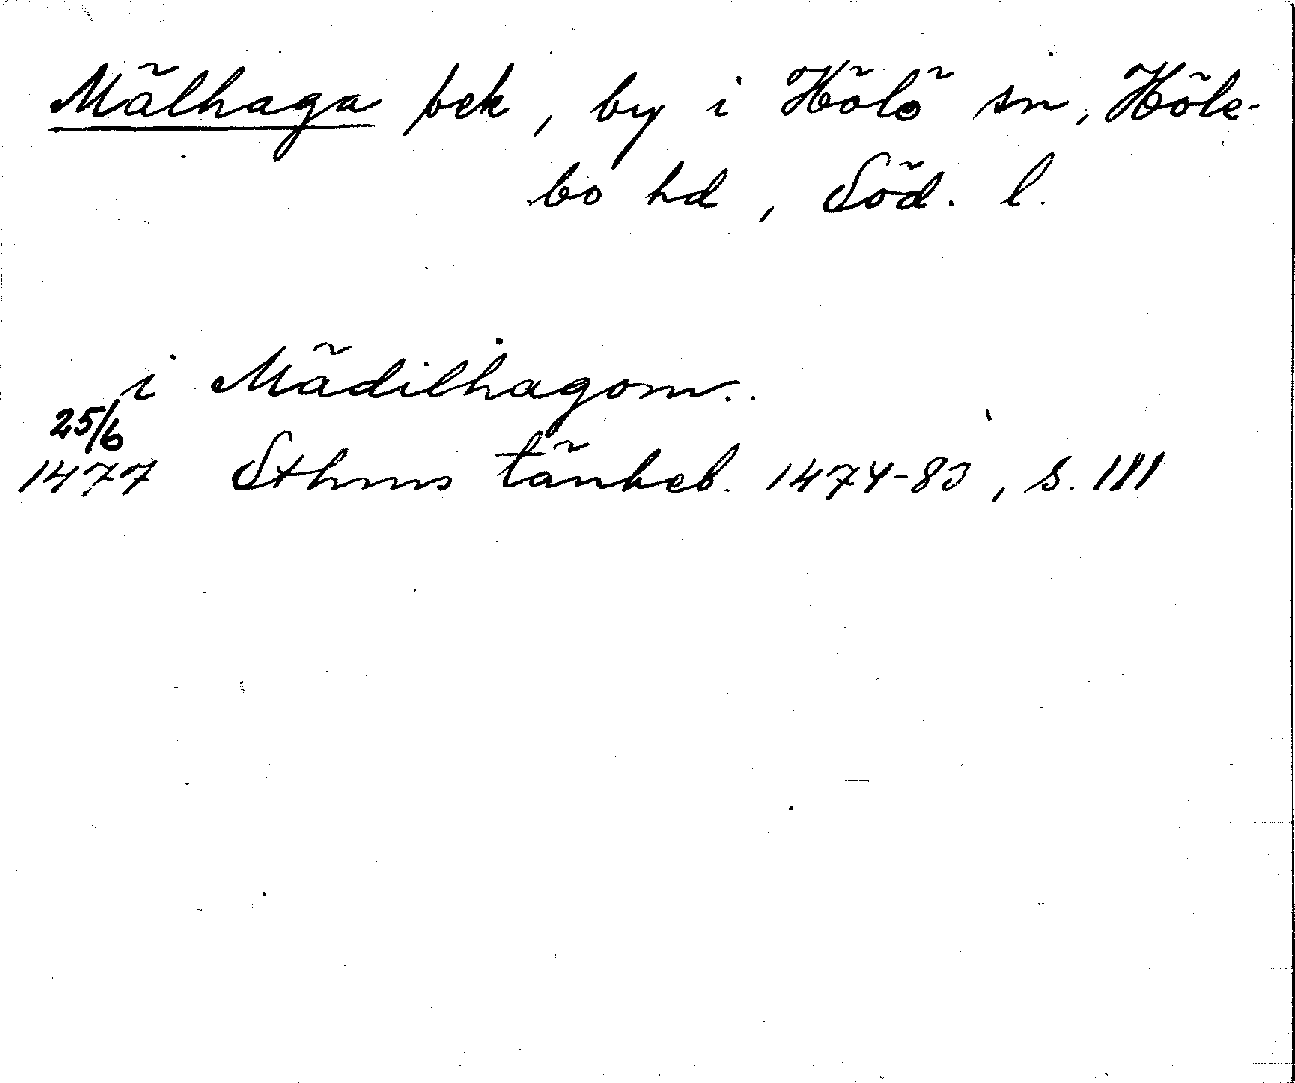 Mälhaga bek, by i Hölö sn, Höle-
bo hd, Söd. l.
i Mädilhagom..
25/6
1477 Sthms tänkeb. 1474-83, s. 111